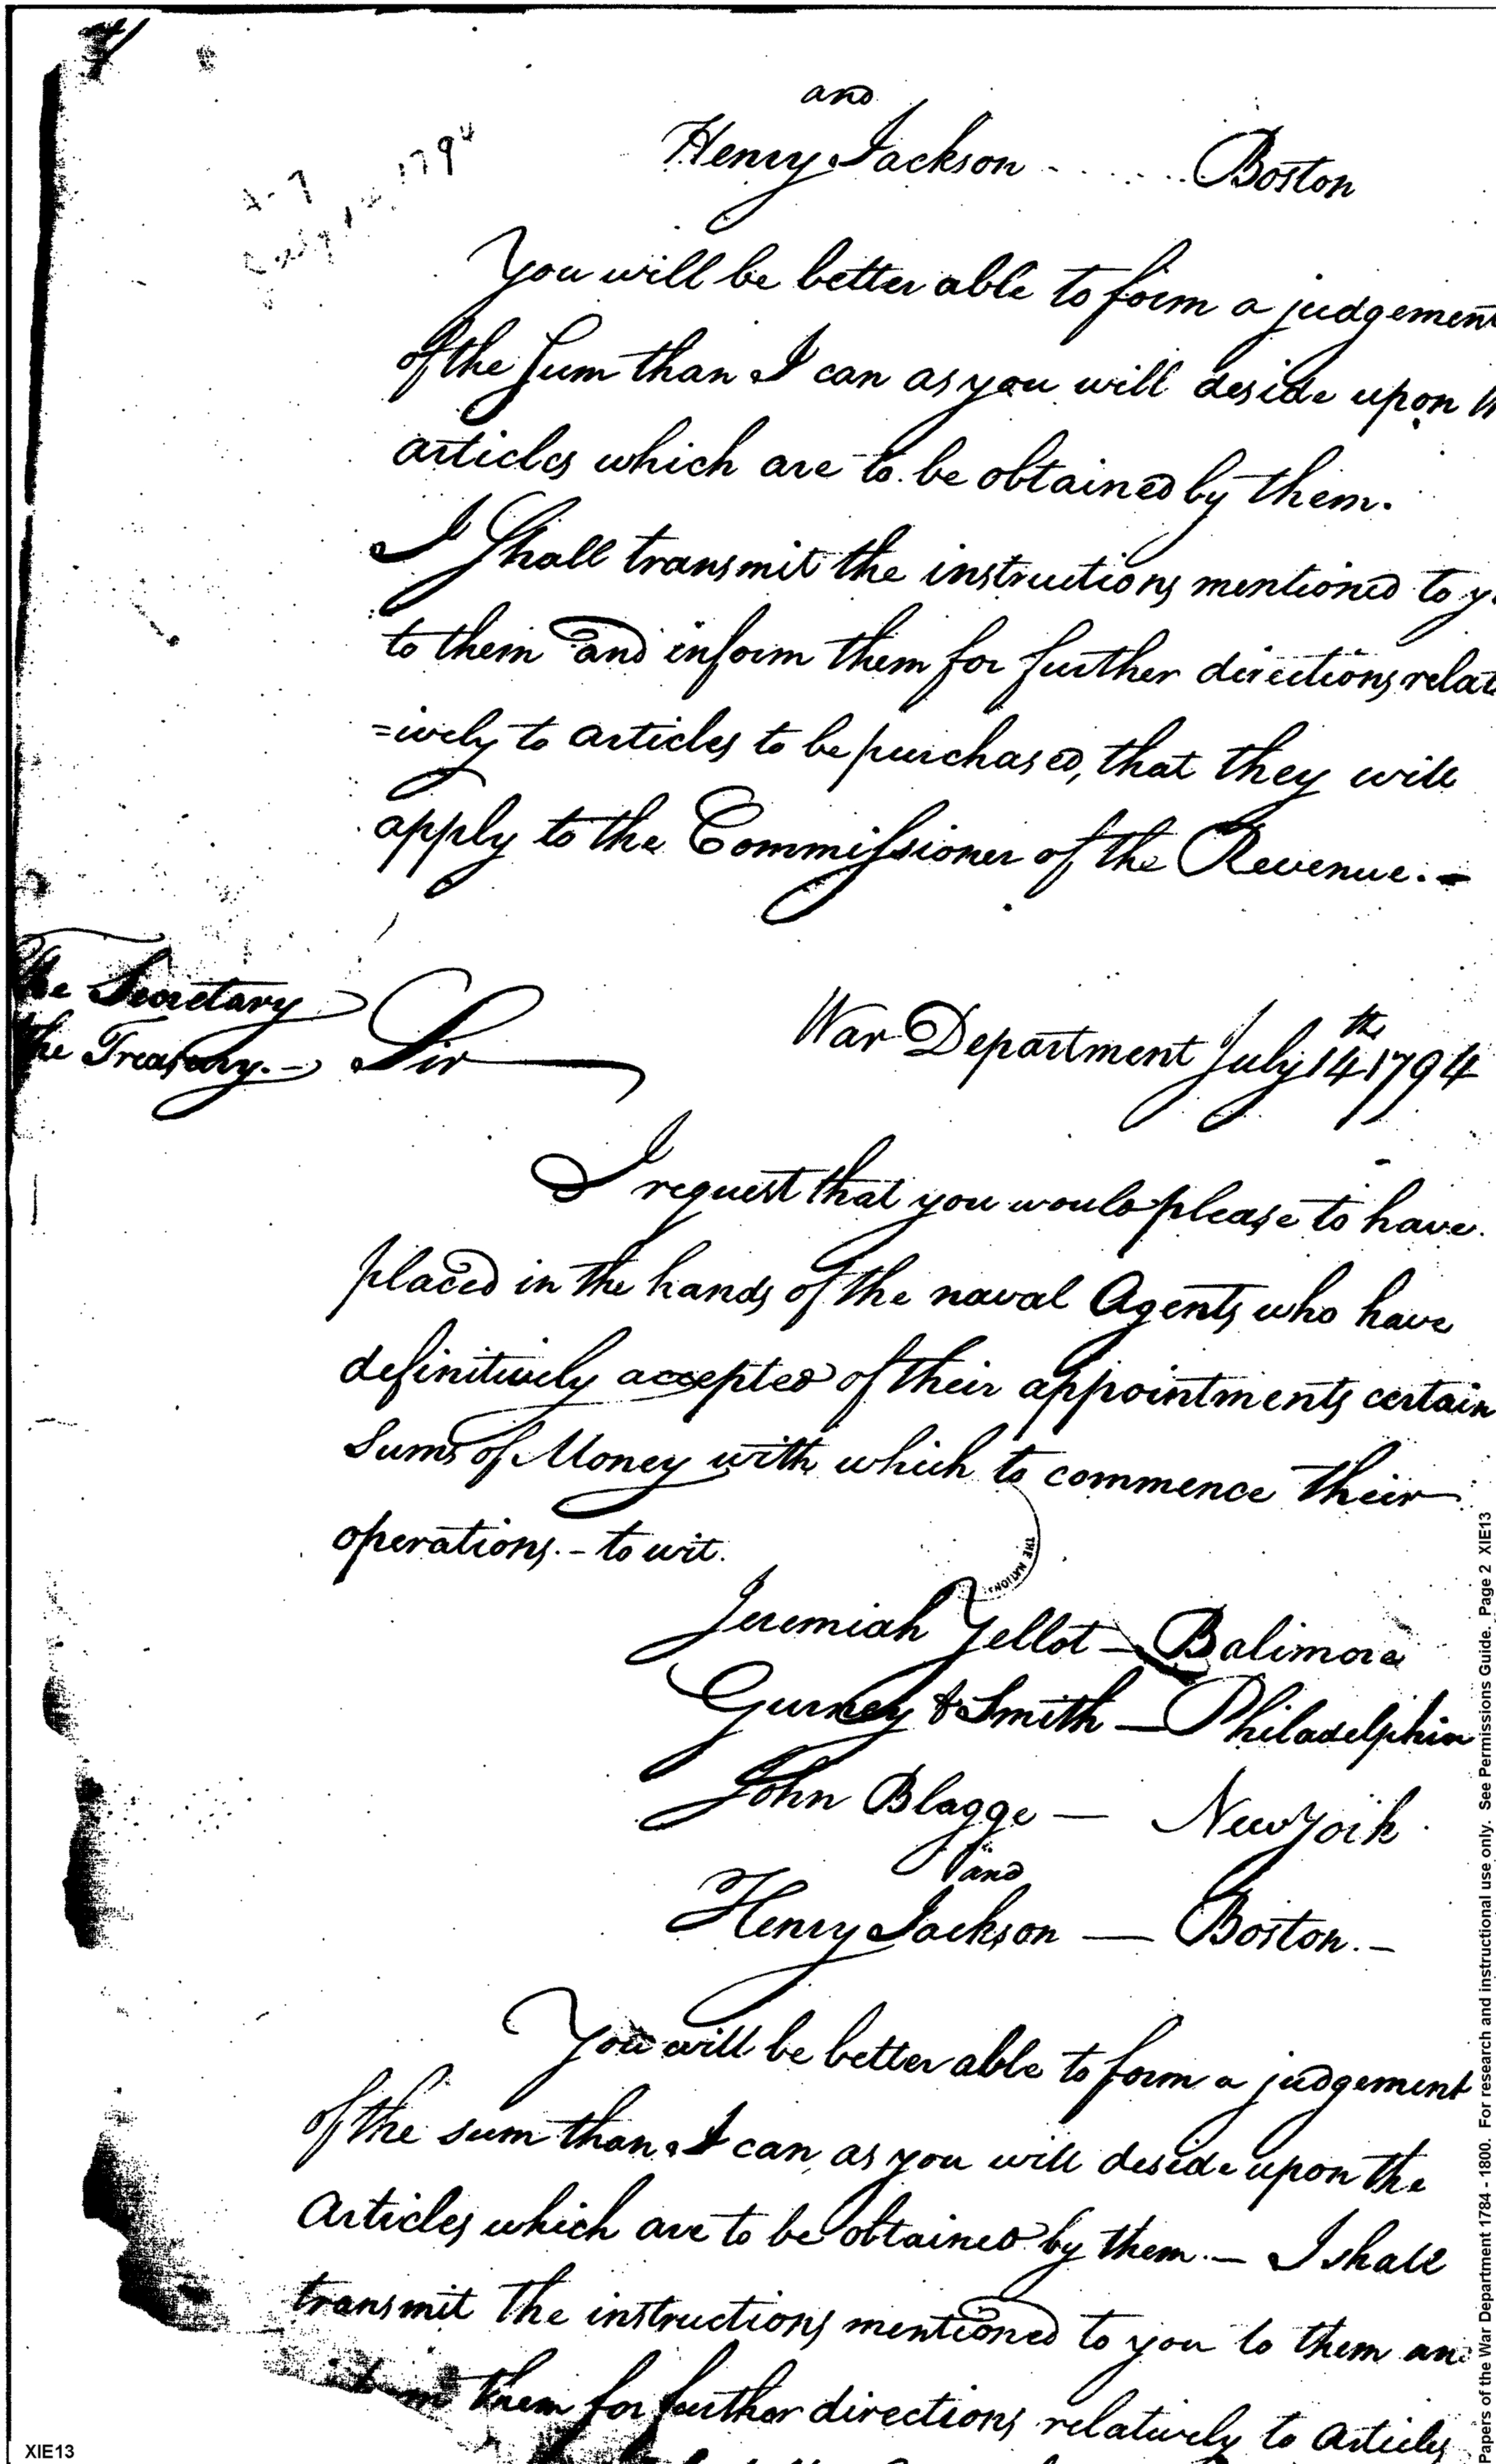 and
Henry Jackson - . . . . . . Boston
You will be better able to form a judgement
of the Sum than I can as you will deside upon
articles which are to be obtained by them.
I Shall transmit the instructions mentioned to
to them and inform them for further directions relat
=ively to articles to be purchased, that they will
apply to the Commissioner of the Revenue. -
The Secretary
the Treasury. - Sir
War Department July 14th 1794
I request that you would please to have
placed in the hands of the naval Agents who have
definitively accepted of their appointments certain
Sums of Money with which to commence their
operations. - to wit.
THE NATION
Jeremiah Yellot - Balimore
Gurney & Smith - Philadelphia
John Blagge - New York
and
Henry Jackson - Boston. -
You will be better able to form a judgement
of the sum than I can as you will deside upon the
Articles which are to be obtained by them. - I shall
transmit the instructions mentioned to you to them an
them for further directions relatively to Articles
Papers of the War Department 1784 - 1800. For research and instructional use only. See Permissions Guide. Page 2 XIE13
XIE13